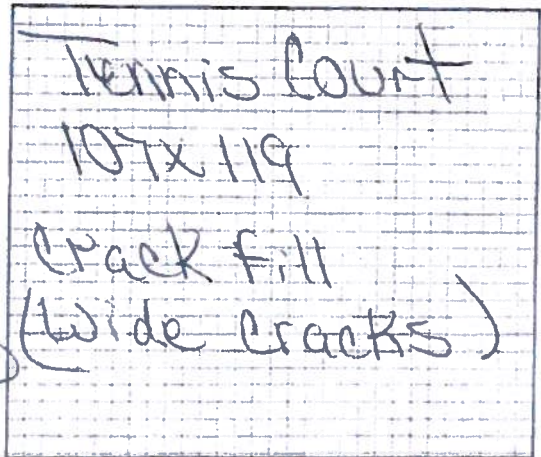 Tennis Court
107x119
Crack fill
(Wide Cracks)